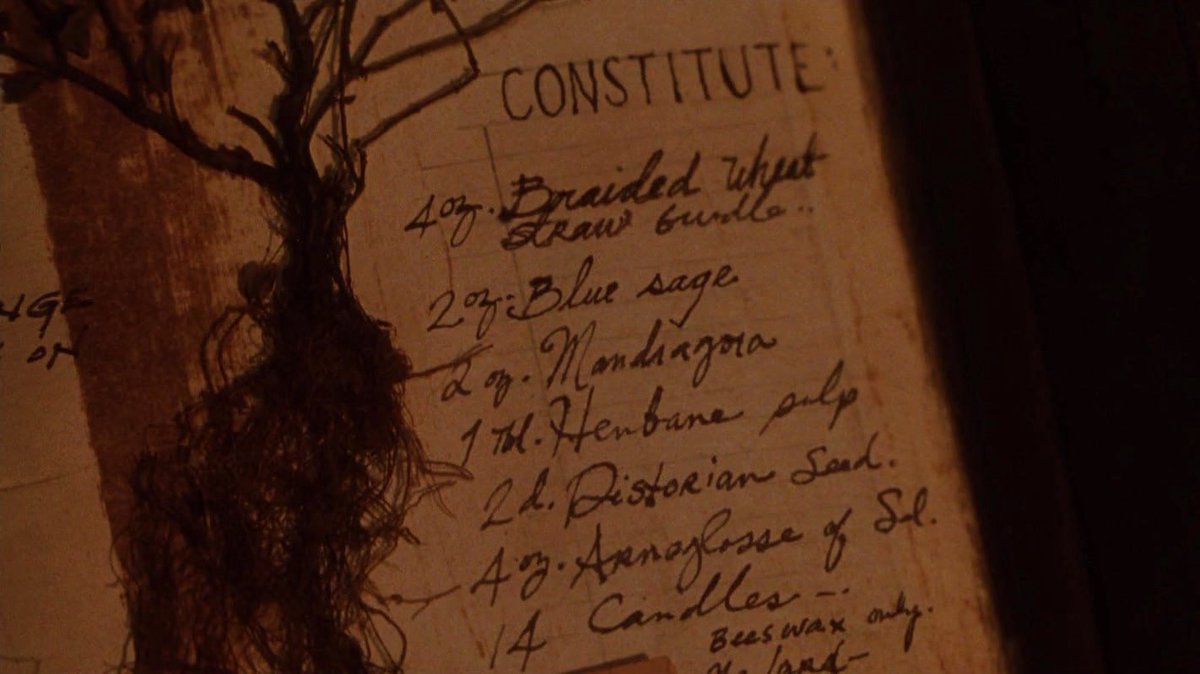 CONSTITUTE:
4 oz. Braided wheat
straw bundle..
2 oz. Blue sage
2 oz. Mandragora
1 Tbl. Henbane pulp
2 d. Distorian Seed.
4 oz. Arnoglosse of Sd.
14 Candles -.
Beeswax only.